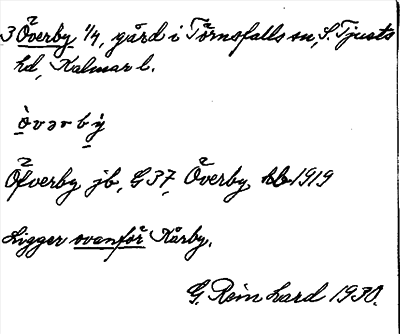 3 Överby 1/4, gård i Törnsfalls sn, S. Tjusts
hd, Kalmar l.
òvərbỳ
Öfverby jb, G 37, Överby hb 1919
Ligger ovanför Kårby.
G. Reinhard 1930.